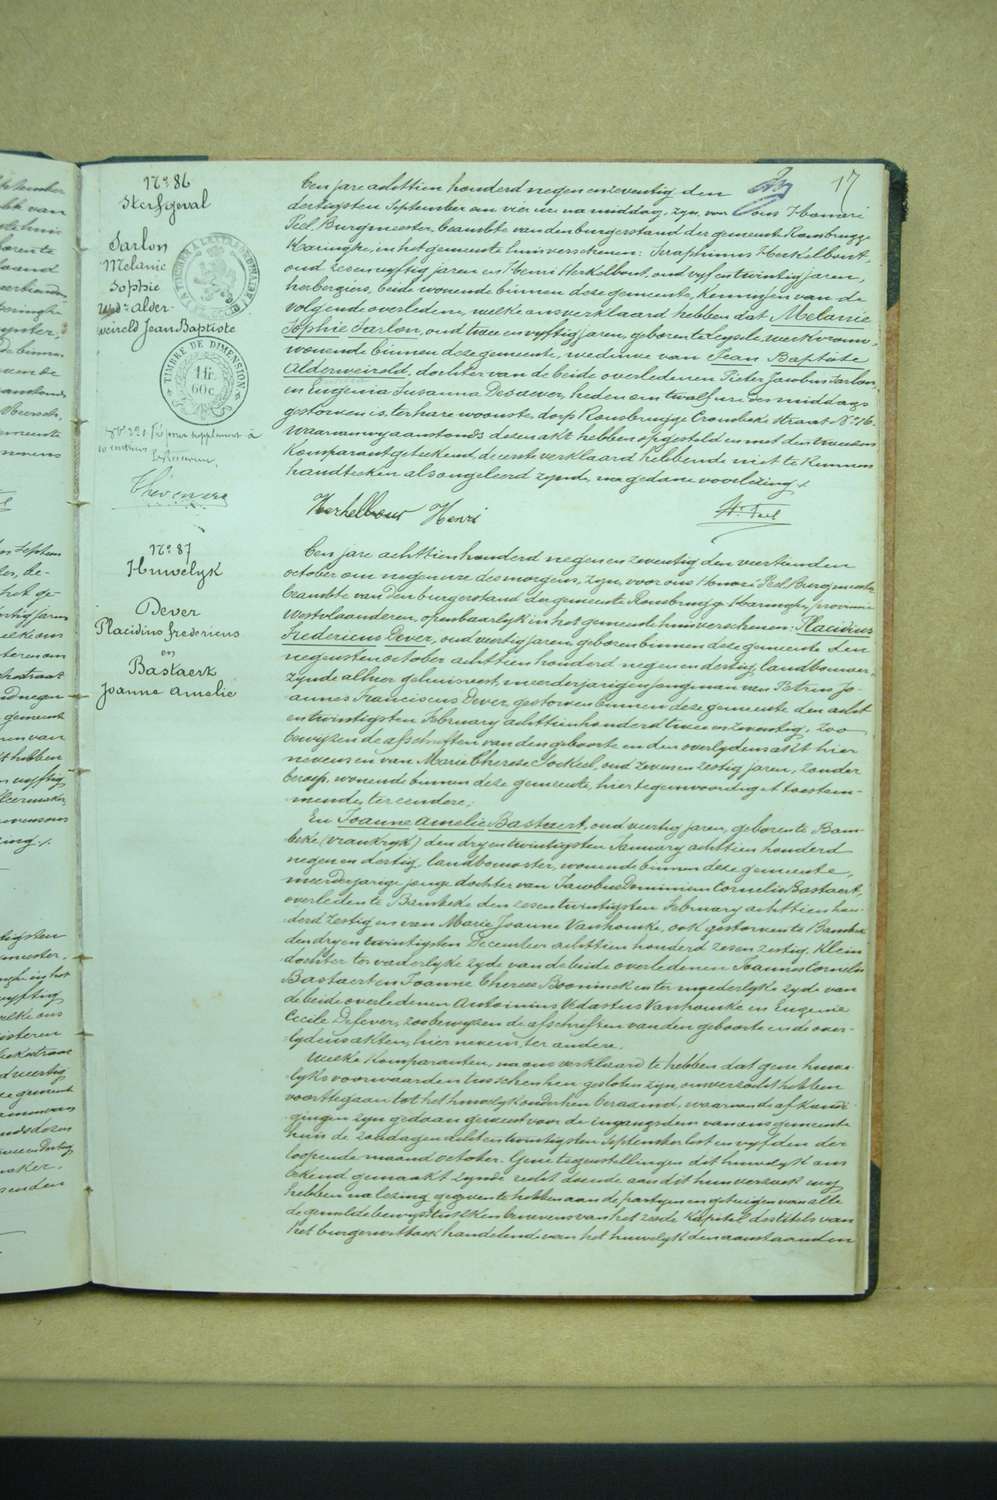 17
Nº 86
Sterfgeval
Sarlon
Melanie
Sophie
Wede Alder-
weireld Jean Baptiste
TIMBRE DE DIMENSION
1 fr.
60 c.
Een jare achttien honderd negen en zeventig den
dertigsten September om vier ure na middag, zyn, voor ons Honoré
Peel Burgmeester, beambte van den burgerstand der gemeente Rousbrugge
Haringhe, in het gemeente huis verschenen: Seraphinus Herkelbout,
oud zesenvyftig jaren en Henri Herkelbout, oud vyf en twintig jaren,
herbergiers, beide wonende binnen deze gemeente, kennissen van de
volgende overledene, welke ons verklaard hebben dat Melanie
Sophie Sarlon, oud twee en vyftig jaren, geboren te Leysele, werkvrouw,
wonende binnen deze gemeente, weduwe van Jean Baptiste
Alderweireld, dochter van de beide overledenen Pieter Jacobus Sarlon,
en Eugenia Susanna Desaever, heden om twalf ure des middags
gestorven is, ter hare woonste, dorp Rousbrugge Crombeke straat Nº 16.
Waarvan wy aanstonds dezen akt hebben opgesteld en met den tweeden
Komparant geteekend, de eerste verklaard hebbende niet te kunnen
handteeken als ongeleerd zynde, na gedane voorlezing.
Herkelbout Henri
Hre Peel
Nº 87
Huwelyk
Dever
Placidius Fredericus
en
Bastaert
Joanne Amelie
Een jare achttien honderd negen en zeventig den veertienden
october om negen ure des morgens, zyn, voor ons Honoré Peel Burgmeester
beambte van den burgerstand der gemeente Rousbrugge Haringhe, provincie
Westvlaanderen, openbaarlyk in het gemeente huis verschenen: Placidius
Fredericus Dever, oud veertig jaren, geboren binnen deze gemeente den
negensten october achttien honderd negen en dertig, landbouwer,
zynde alhier gehuisvest, meerderjarigen jongman van Petrus Jo-
annes Franciscus Dever, gestorven binnen deze gemeente den acht
en twintigsten February achttien honderd twee en zeventig, zoo
bewyzen de afschriften van den geboorte en den overlydens akt hier
nevens en van Marie Therese Jockeel, oud zeven en zestig jaren, zonder
beroep, wonende binnen deze gemeente, hier tegenwoordig et toestem-
mende, ter eendere;
En Joanne Amelie Bastaert, oud veertig jaren, geboren te Bam-
beke (Vrankryk) den dry en twintigsten January achttien honderd
negen en dertig, landbouwster, wonende binnen deze gemeente,
meerderjarige jonge dochter van Jacobus Dominicus Cornelis Bastaert,
overleden te Bambeke den zes en twintigsten February achttien hon-
derd zestig en van Marie Joanne Vanhoucke, ook gestorven te Bambeke
den dry en twintigsten December achttien honderd zes en zestig, Klein
dochter ter vaderlyke zyde van de beide overledenen Joannes Cornelis
Bastaert en Joanne Therese Booninck en ter moederlyke zyde van
de beide overledenen Antoinius Vedastus Vanhoucke en Eugenie
Cecile Defever, zoo bewyzen de afschriften van den geboorte en de over-
lydens akten, hier nevens, ter andere.
Welke Komparanten, na ons verklaard te hebben dat gene huwe-
lyks voorwaarden tusschen hen gesloten zyn, ons verzocht hebben
voorttegaan tot het huwelyk onder hen beraamd, waarvan de afkondi-
gingen zyn gedaan geweest voor de ingangsdeur van ons gemeente
huis de zondagen acht en twintigsten September lest en vyfden der
loopende maand october. Gene tegenstellingen dit huwelyk ons
bekend gemaakt zynde recht doende aan dit hun verzoek wy
hebben na lezing gegeven te hebben aan de partyen en getuigen van alle
de gemelde bewysstukken benevens van het zesde Kapitel des titels van
het burger wetboek handelende van het huwelyk den aanstaanden